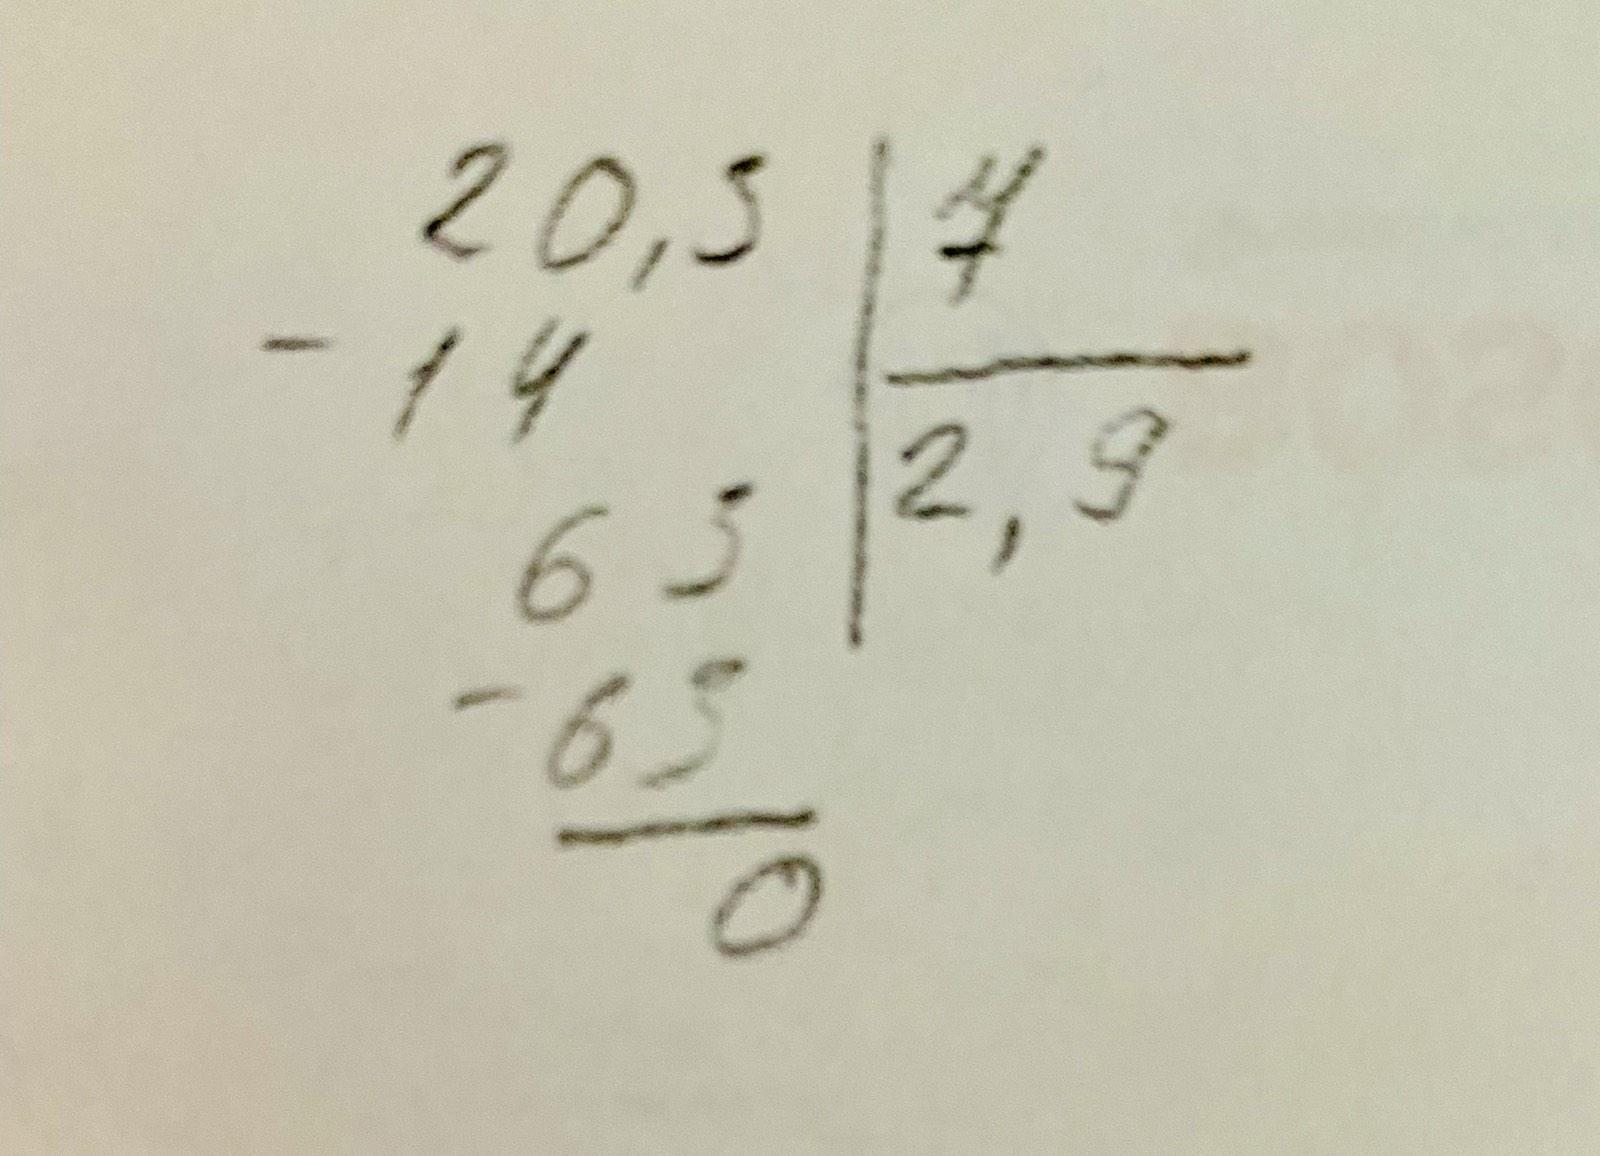 20,5 7
- 14 2,9
65
- 65
0